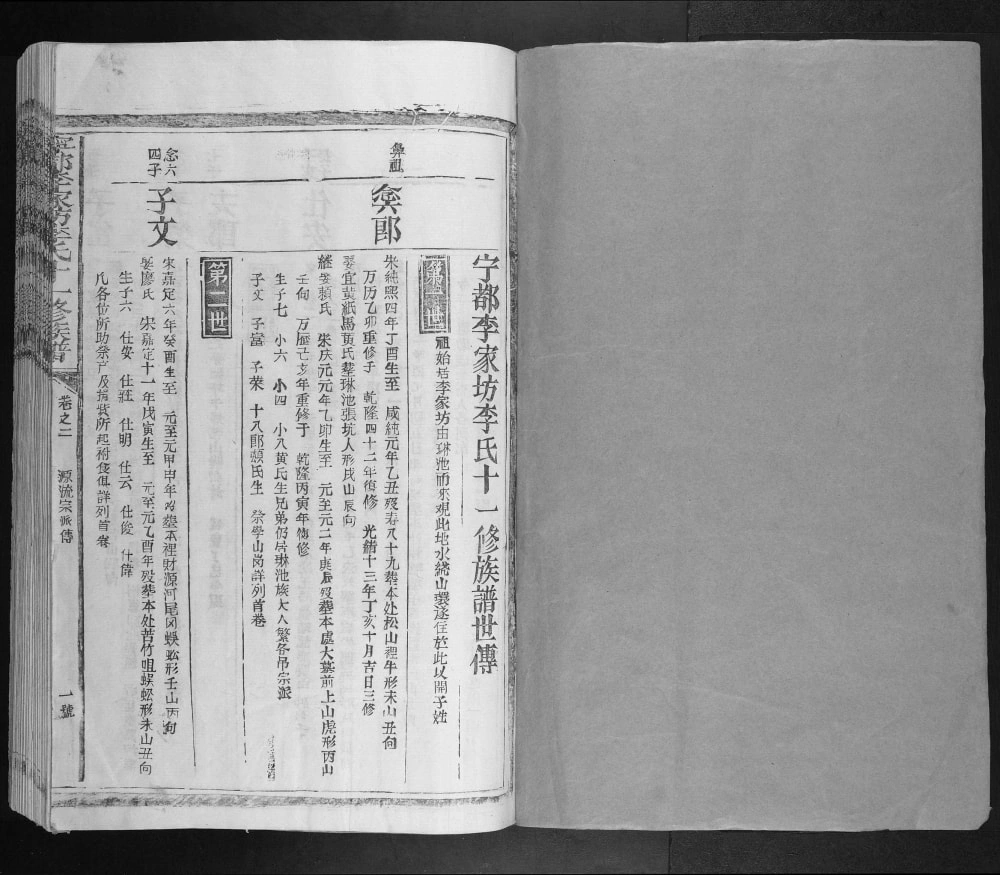 宁都李家坊李氏十一修族譜世傳
第一世
祖始居李家坊由琳池而來观此地水繞山環遂住於此以開子姓
鼻祖
奂郎
宋純熙四年丁酉生至 咸純元年乙丑歿寿八十九塟本处松山裡牛形未山丑向
万历乙卯重修于 乾隆四十二年復修 光緒十三年丁亥十月吉日三修
娶宜黄紙馬黄氏塟琳池張坑人形戌山辰向
継娶賴氏 宋庆元元年乙卯生至 元至元二年庚辰歿塟本處大墓前上山虎形丙山
壬向 万歷己亥年重修于 乾隆丙寅年復修
生子七 小六 小四 小八黄氏生兄弟仍居琳池族大人繁各吊宗派
子文 子富 子荣 十八郎頼氏生 祭學山岗詳列首卷
第二世
念六
四子
子文
宋嘉定六年癸酉生至 元至元甲申年歿塟本裡財源河尾冈蜈蚣形壬山丙向
娶廖氏 宋嘉定十一年戊寅生至 元至元乙酉年殁塟本处苦竹咀蜈蚣形未山丑向
生子六 仕安 仕莊 仕明 仕云 仕俊 仕偉
凡各位所助祭产及捐貲所起祔食俱詳列首卷
宁都李家坊李氏十一修族譜
卷之二
源流宗派傳
一號